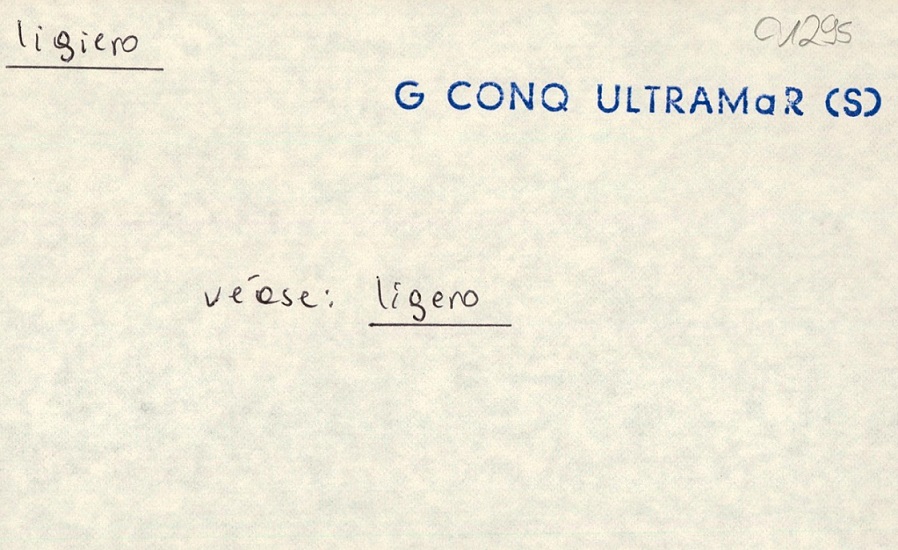 ligiero
a1295
G CONQ ULTRAMaR (S)
véase: ligero